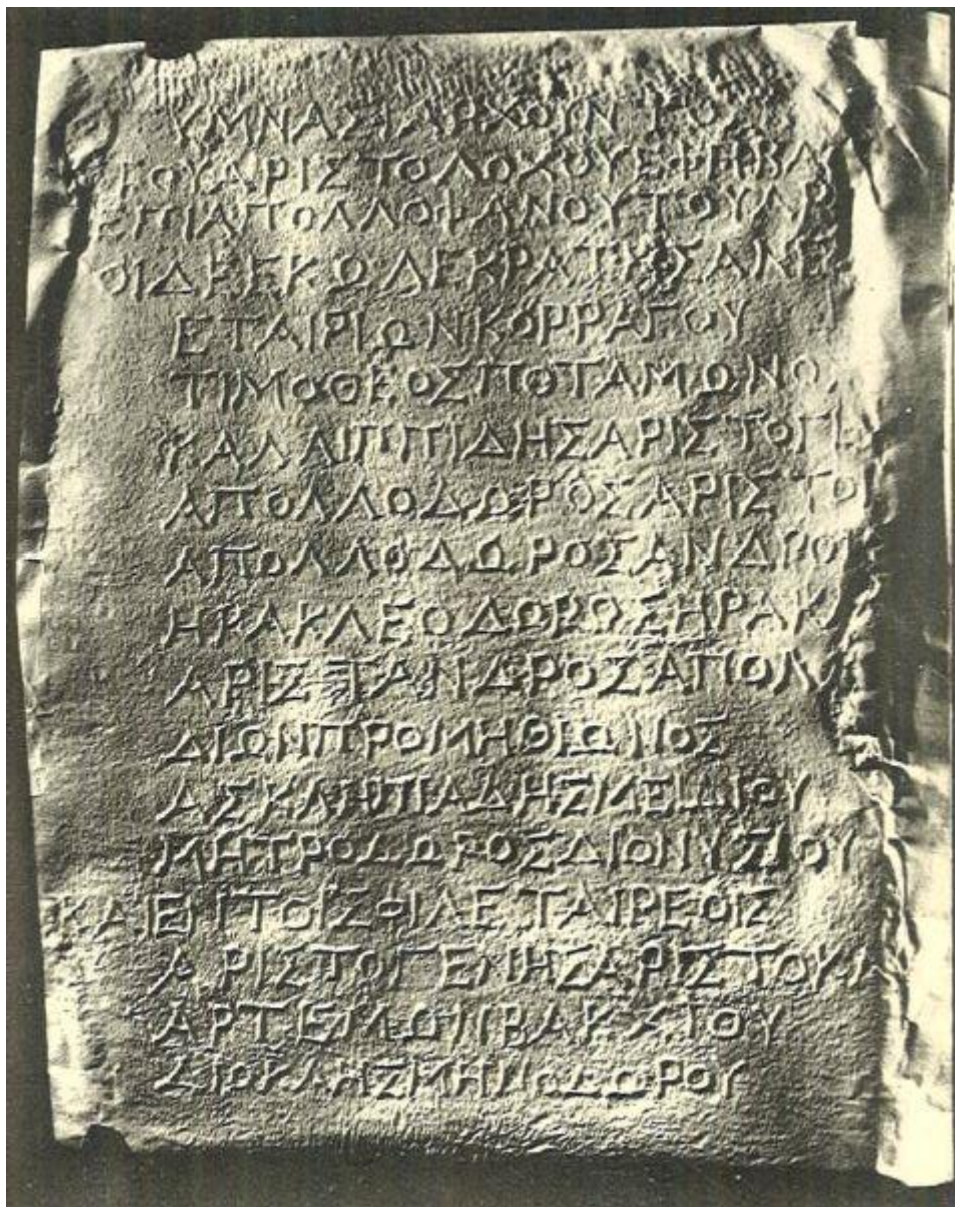 ΥΜΝΑΣΙΑΡΧΟΥΝΤΟΣ
ΤΟΥΑΡΙΣΤΟΛΟΧΟΥΕΦΗΒΑ
ΕΠΙΑΠΟΛΛΟΦΑΝΟΥΤΟΥΑΠΟ
ΟΙΔΕΕΚΩΔΕΚΡΑΤΗΣΑΝΕ
ΕΤΑΙΡΙΩΝΚΟΡΡΑΓΟΥ
ΤΙΜΟΘΕΟΣΠΟΤΑΜΩΝΟΣ
ΚΑΛΛΙΠΠΙΔΗΣΑΡΙΣΤΟΓΕ
ΑΠΟΛΛΟΔΩΡΟΣΑΡΙΣΤΟ
ΑΠΟΛΛΟΔΩΡΟΣΑΝΔΡΟ
ΗΡΑΚΛΕΟΔΩΡΟΣΗΡΑΚ
ΑΡΙΣΤΑΝΔΡΟΣΑΠΟΛ
ΔΙΩΝΠΡΟΜΗΘΙΩΝΟΣ
ΑΣΚΛΗΠΙΑΔΗΣΜΕΙΔΙΟΥ
ΜΗΤΡΟΔΩΡΟΣΔΙΟΝΥΣΙΟΥ
ΚΑΙΕΝΤΟΙΣΦΙΛΕΤΑΙΡΕΟΙΣ
ΑΡΙΣΤΟΓΕΝΗΣΑΡΙΣΤΟΥΛ
ΑΡΤΕΜΩΝΒΑΚΧΙΟΥ
ΔΙΟΚΛΗΣΜΗΝΟΔΩΡΟΥ